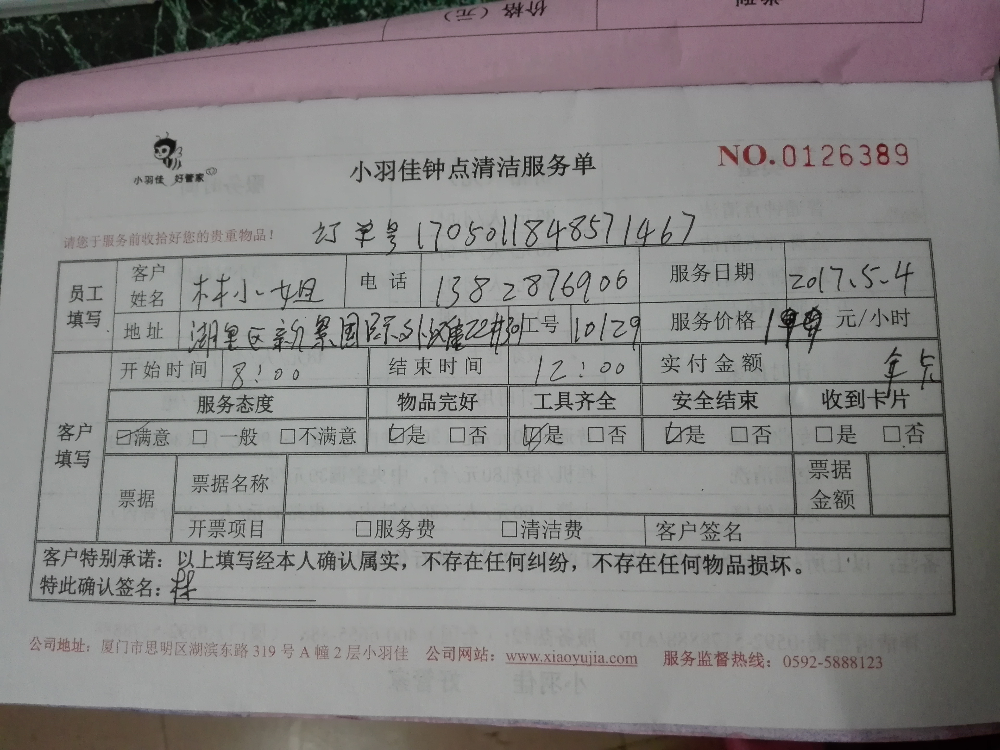 价格（元）
类型
小羽佳 好管家
小羽佳钟点清洁服务单
NO.0126389
请您于服务前收拾好您的贵重物品！ 订单号 1705011848571467
员工填写 客户姓名 林小姐 电话 1382876906 服务日期 2017.5.4
地址 湖里区新景国际 22 301 工号 10129 服务价格 元/小时
客户填写 开始时间 8:00 结束时间 12:00 实付金额 年卡
服务态度 物品完好 工具齐全 安全结束 收到卡片
☑满意 □一般 □不满意 ☑是 □否 ☑是 □否 ☑是 □否 □是 □否
票据 票据名称 票据金额
开票项目 □服务费 □清洁费 客户签名
客户特别承诺：以上填写经本人确认属实，不存在任何纠纷，不存在任何物品损坏。
特此确认签名：林
公司地址：厦门市思明区湖滨东路 319 号 A 幢 2 层小羽佳 公司网站：www.xiaoyujia.com 服务监督热线：0592-5888123